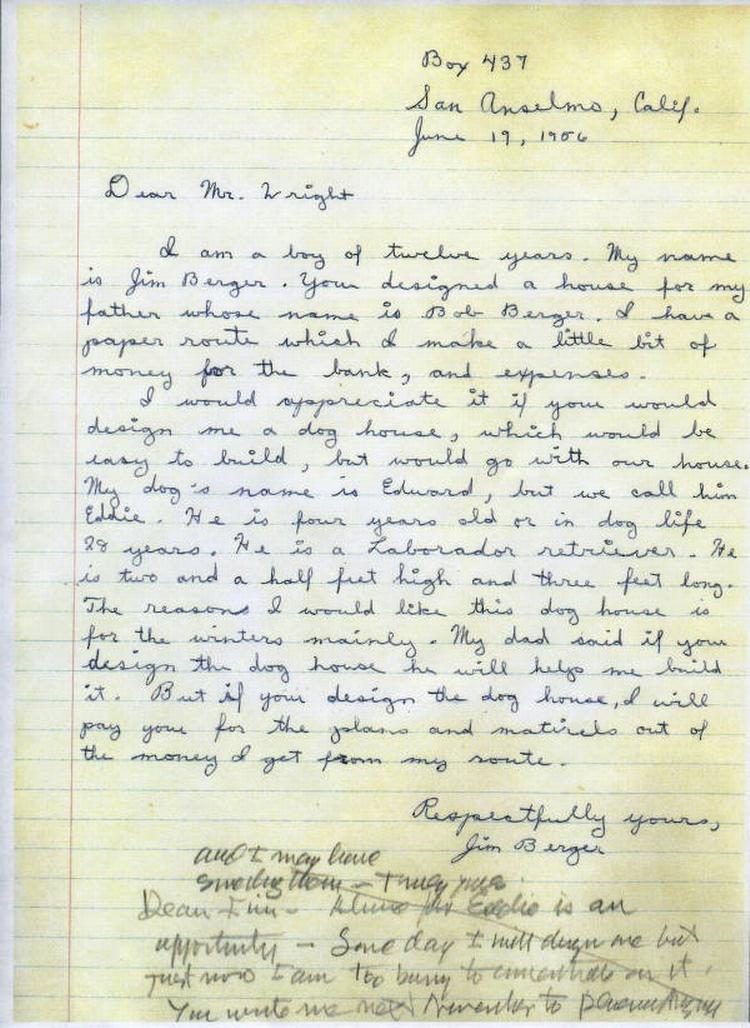 Box 437
San Anselmo, Calif.
June 19, 1956
Dear Mr. Wright
I am a boy of twelve years. My name
is Jim Berger. You designed a house for my
father whose name is Bob Berger. I have a
paper route which I make a little bit of
money for the bank, and expenses.
I would appreciate it if you would
design me a dog house, which would be
easy to build, but would go with our house.
My dog's name is Edward, but we call him
Eddie. He is four years old or in dog life
28 years. He is a Laborador retriever. He
is two and a half feet high and three feet long.
The reasons I would like this dog house is
for the winters mainly. My dad said if you
design the dog house he will help me build
it. But if you design the dog house, I will
pay you for the plans and matirels out of
the money I get from my route.
Respectfully yours,
Jim Berger
and I may have
something then - Truly yours
Dear Jim - A house for Eddie is an
opportunity - Some day I will design one but
just now I am too busy to concentrate on it.
You write me next November to Phoenix Arizona